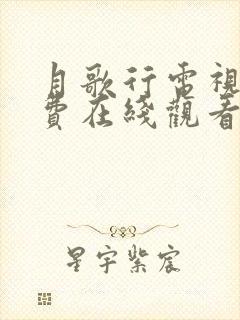 月歌行電視
費在綫觀看
星宇紫宸